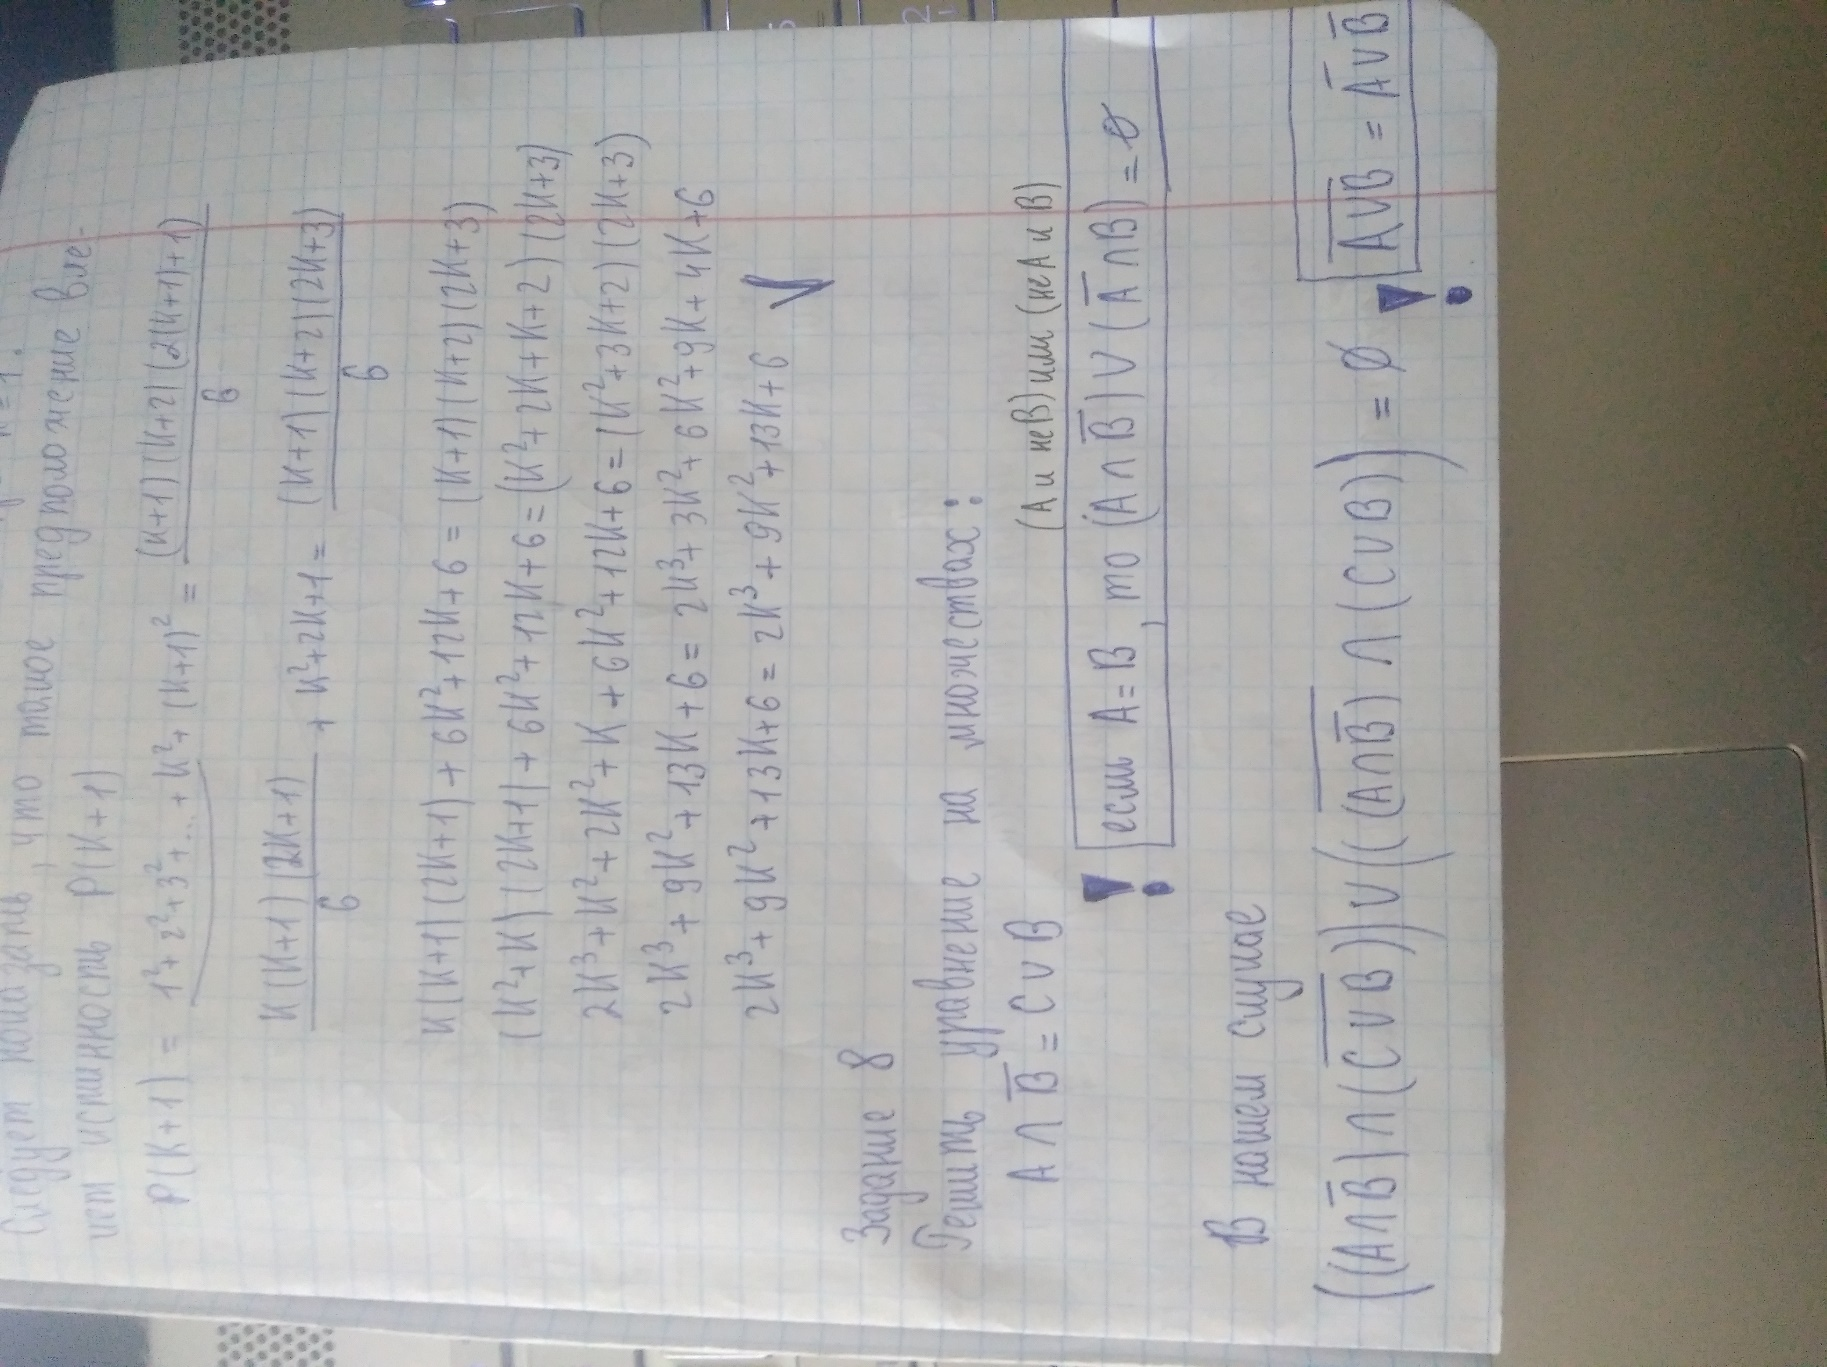 n=1.
Следует показать, что такое предположение вле-
чет истинность P(K+1)
P(K+1) = 1²+2²+3²+...+K²+(K+1)² = (K+1)(K+2)(2(K+1)+1) / 6
K(K+1)(2K+1) / 6 + K²+2K+1 = (K+1)(K+2)(2K+3) / 6
K(K+1)(2K+1)+6K²+12K+6 = (K+1)(K+2)(2K+3)
(K²+K)(2K+1)+6K²+12K+6 = (K²+2K+K+2)(2K+3)
2K³+K²+2K²+K+6K²+12K+6 = (K²+3K+2)(2K+3)
2K³+9K²+13K+6 = 2K³+3K²+6K²+9K+4K+6
2K³+9K²+13K+6 = 2K³+9K²+13K+6 √
Задание 8
Решить уравнение на множествах:
A∩B̅ = C∪B (A и неB) или (неA и B)
! если A=B, то (A∩B̅)∪(A̅∩B)=∅
В нашем случае
((A∩B̅)∩(C̅∪̅B̅))∪((A̅∩̅B̿)∩(C∪B)) = ∅ ! A̅∪̅B̅ = A̅∪B̅